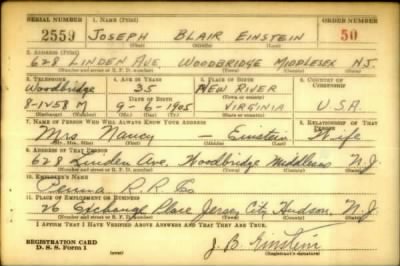 SERIAL NUMBER 1. NAME (Print) ORDER NUMBER
2559 JOSEPH BLAIR EINSTEIN 50
(First) (Middle) (Last)
2. ADDRESS (Print)
628 LINDEN AVE, WOODBRIDGE MIDDLESEX N.J.
(Number and street or R. F. D. number) (Town) (County) (State)
3. TELEPHONE 4. AGE IN YEARS 5. PLACE OF BIRTH 6. COUNTRY OF CITIZENSHIP
Woodbridge 35 NEW RIVER
DATE OF BIRTH
8-1458 M 9-6-1905 VIRGINIA U.S.A.
(Exchange) (Number) (Mo.) (Day) (Yr.) (State or country)
7. NAME OF PERSON WHO WILL ALWAYS KNOW YOUR ADDRESS 8. RELATIONSHIP OF THAT PERSON
Mrs Nancy — Einstein Wife
(Mr., Mrs., Miss) (First) (Middle) (Last)
9. ADDRESS OF THAT PERSON
628 Linden Ave. Woodbridge Middlesex N.J.
(Number and street or R. F. D. number) (Town) (County) (State)
10. EMPLOYER'S NAME
Penna R.R Co
11. PLACE OF EMPLOYMENT OR BUSINESS
26 Exchange Place Jersey City Hudson, N.J
(Number and street or R. F. D. number) (Town) (County) (State)
I AFFIRM THAT I HAVE VERIFIED ABOVE ANSWERS AND THAT THEY ARE TRUE.
REGISTRATION CARD J. B. Einstein
D. S. S. Form 1 (Registrant's signature)